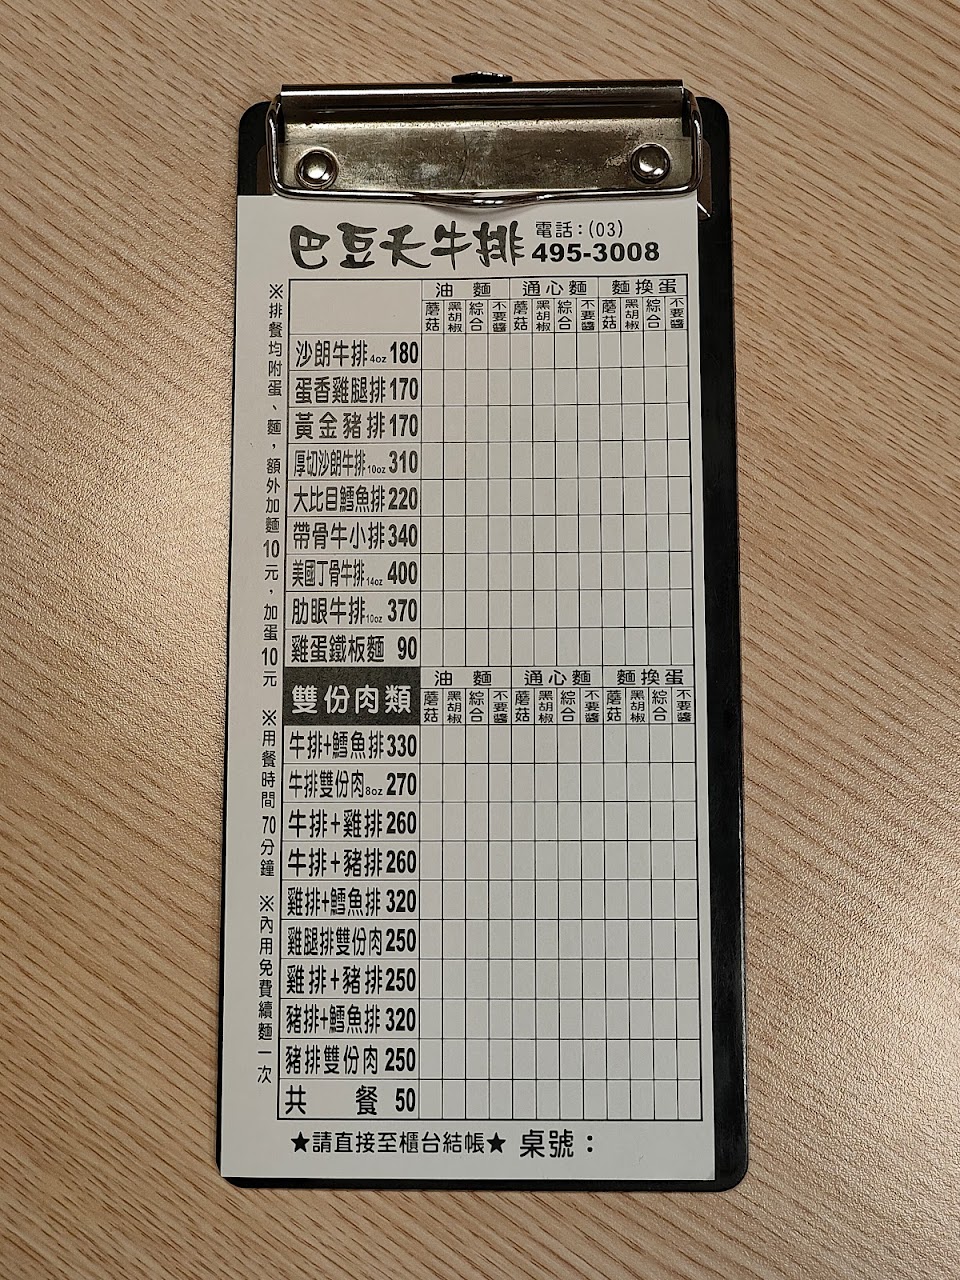 巴豆夭牛排
電話：(03)
495-3008
※排餐均附蛋、麵，額外加麵10元，加蛋10元 ※用餐時間70分鐘 ※內用免費續麵一次
油麵 通心麵 麵換蛋
蘑菇 黑胡椒 綜合 不要醬 蘑菇 黑胡椒 綜合 不要醬 蘑菇 黑胡椒 綜合 不要醬
沙朗牛排4oz 180
蛋香雞腿排 170
黃金豬排 170
厚切沙朗牛排10oz 310
大比目鱈魚排 220
帶骨牛小排 340
美國丁骨牛排14oz 400
肋眼牛排10oz 370
雞蛋鐵板麵 90
雙份肉類
油麵 通心麵 麵換蛋
蘑菇 黑胡椒 綜合 不要醬 蘑菇 黑胡椒 綜合 不要醬 蘑菇 黑胡椒 綜合 不要醬
牛排+鱈魚排 330
牛排雙份肉8oz 270
牛排+雞排 260
牛排+豬排 260
雞排+鱈魚排 320
雞腿排雙份肉 250
雞排+豬排 250
豬排+鱈魚排 320
豬排雙份肉 250
共餐 50
★請直接至櫃台結帳★ 桌號：